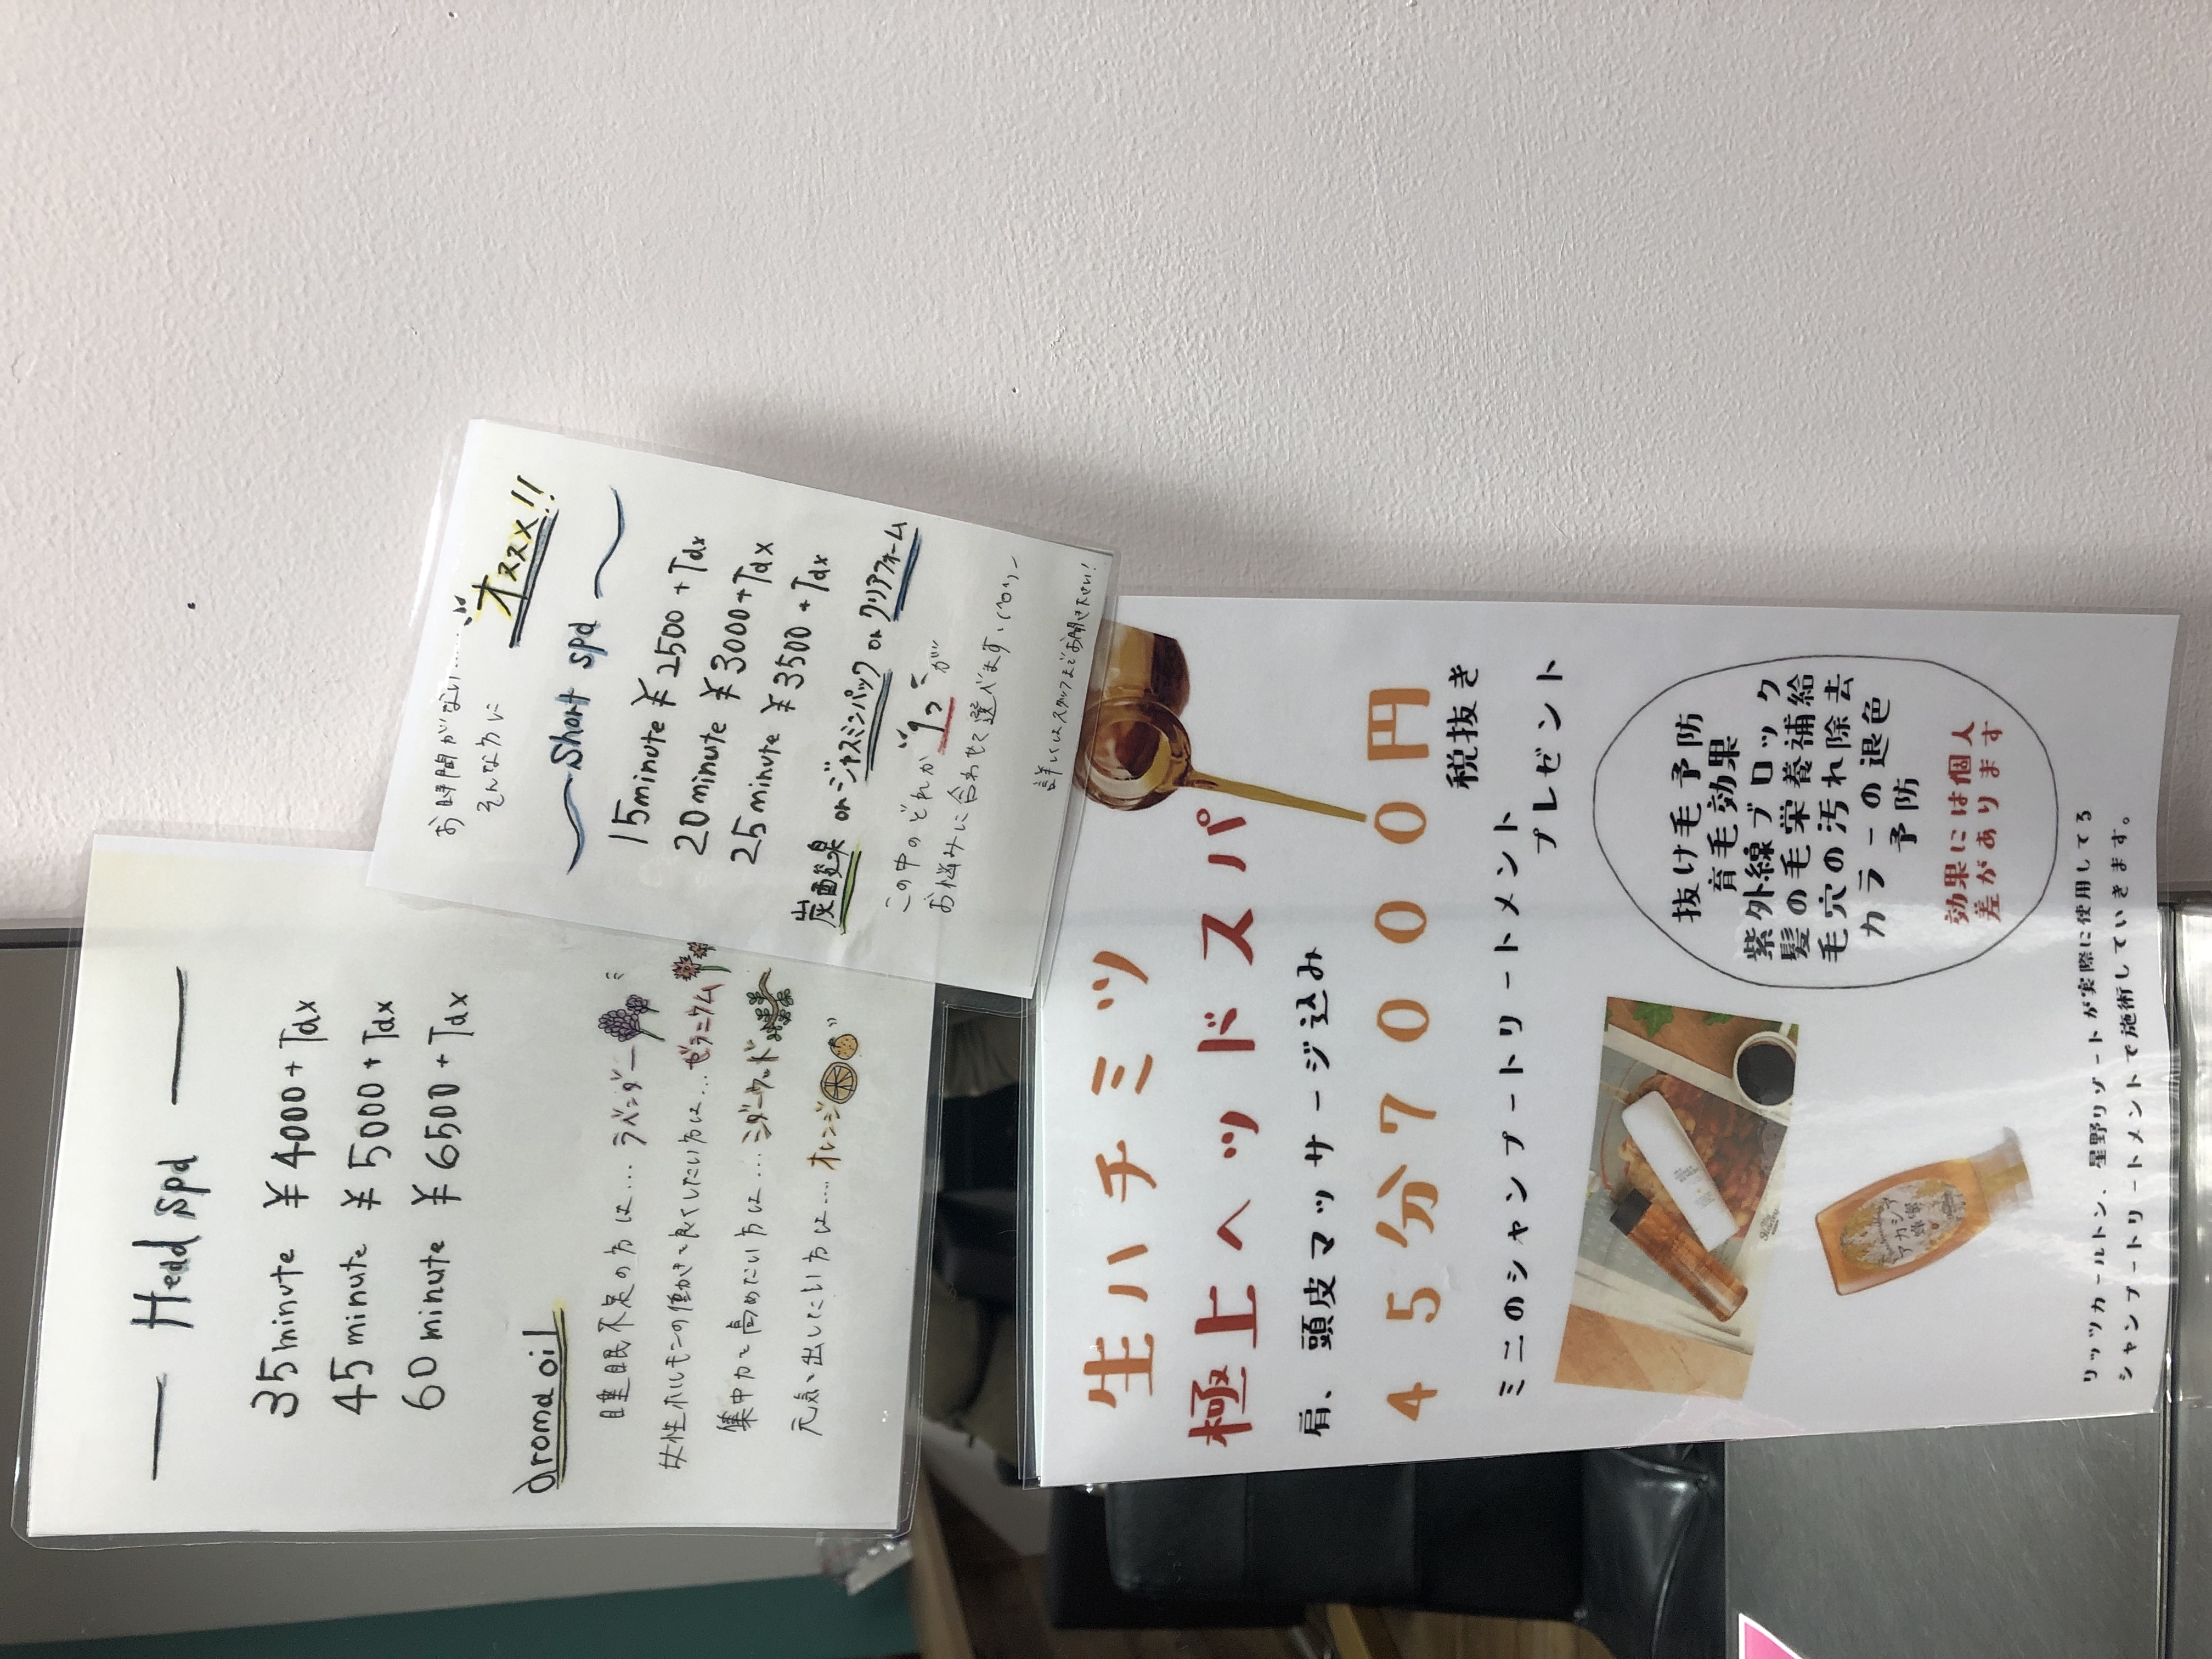 Head spa
35minute ¥4000+Tax
45minute ¥5000+Tax
60minute ¥6500+Tax
aroma oil
睡眠不足の方は...ラベンダー
女性ホルモンの働きを良くしたい方は...ゼラニウム
集中力を高めたい方は...シダーウッド
元気を出したい方は....オレンジ
お時間がない.....
そんな方に
オススメ!!
Short spa
15minute ¥2500+Tax
20minute ¥3000+Tax
25minute ¥3500+Tax
炭酸泉 or ジャスミンパック or クリアフォーム
この中のどれか"1つ"が
お悩みに合わせて選べます
詳しくはスタッフまでお聞き下さい!
生ハチミツ
極上ヘッドスパ
肩、頭皮マッサージ込み
45分7000円
税抜き
ミニのシャンプートリートメント
プレゼント
抜け毛予防
育毛効果
紫外線ブロック
髪の毛栄養補給
毛穴の汚れ除去
カラーの退色
予防
効果には個人
差があります
アカシア
蜂蜜
リッツカールトン、星野リゾートが実際に使用してる
シャンプートリートメントで施術していきます。